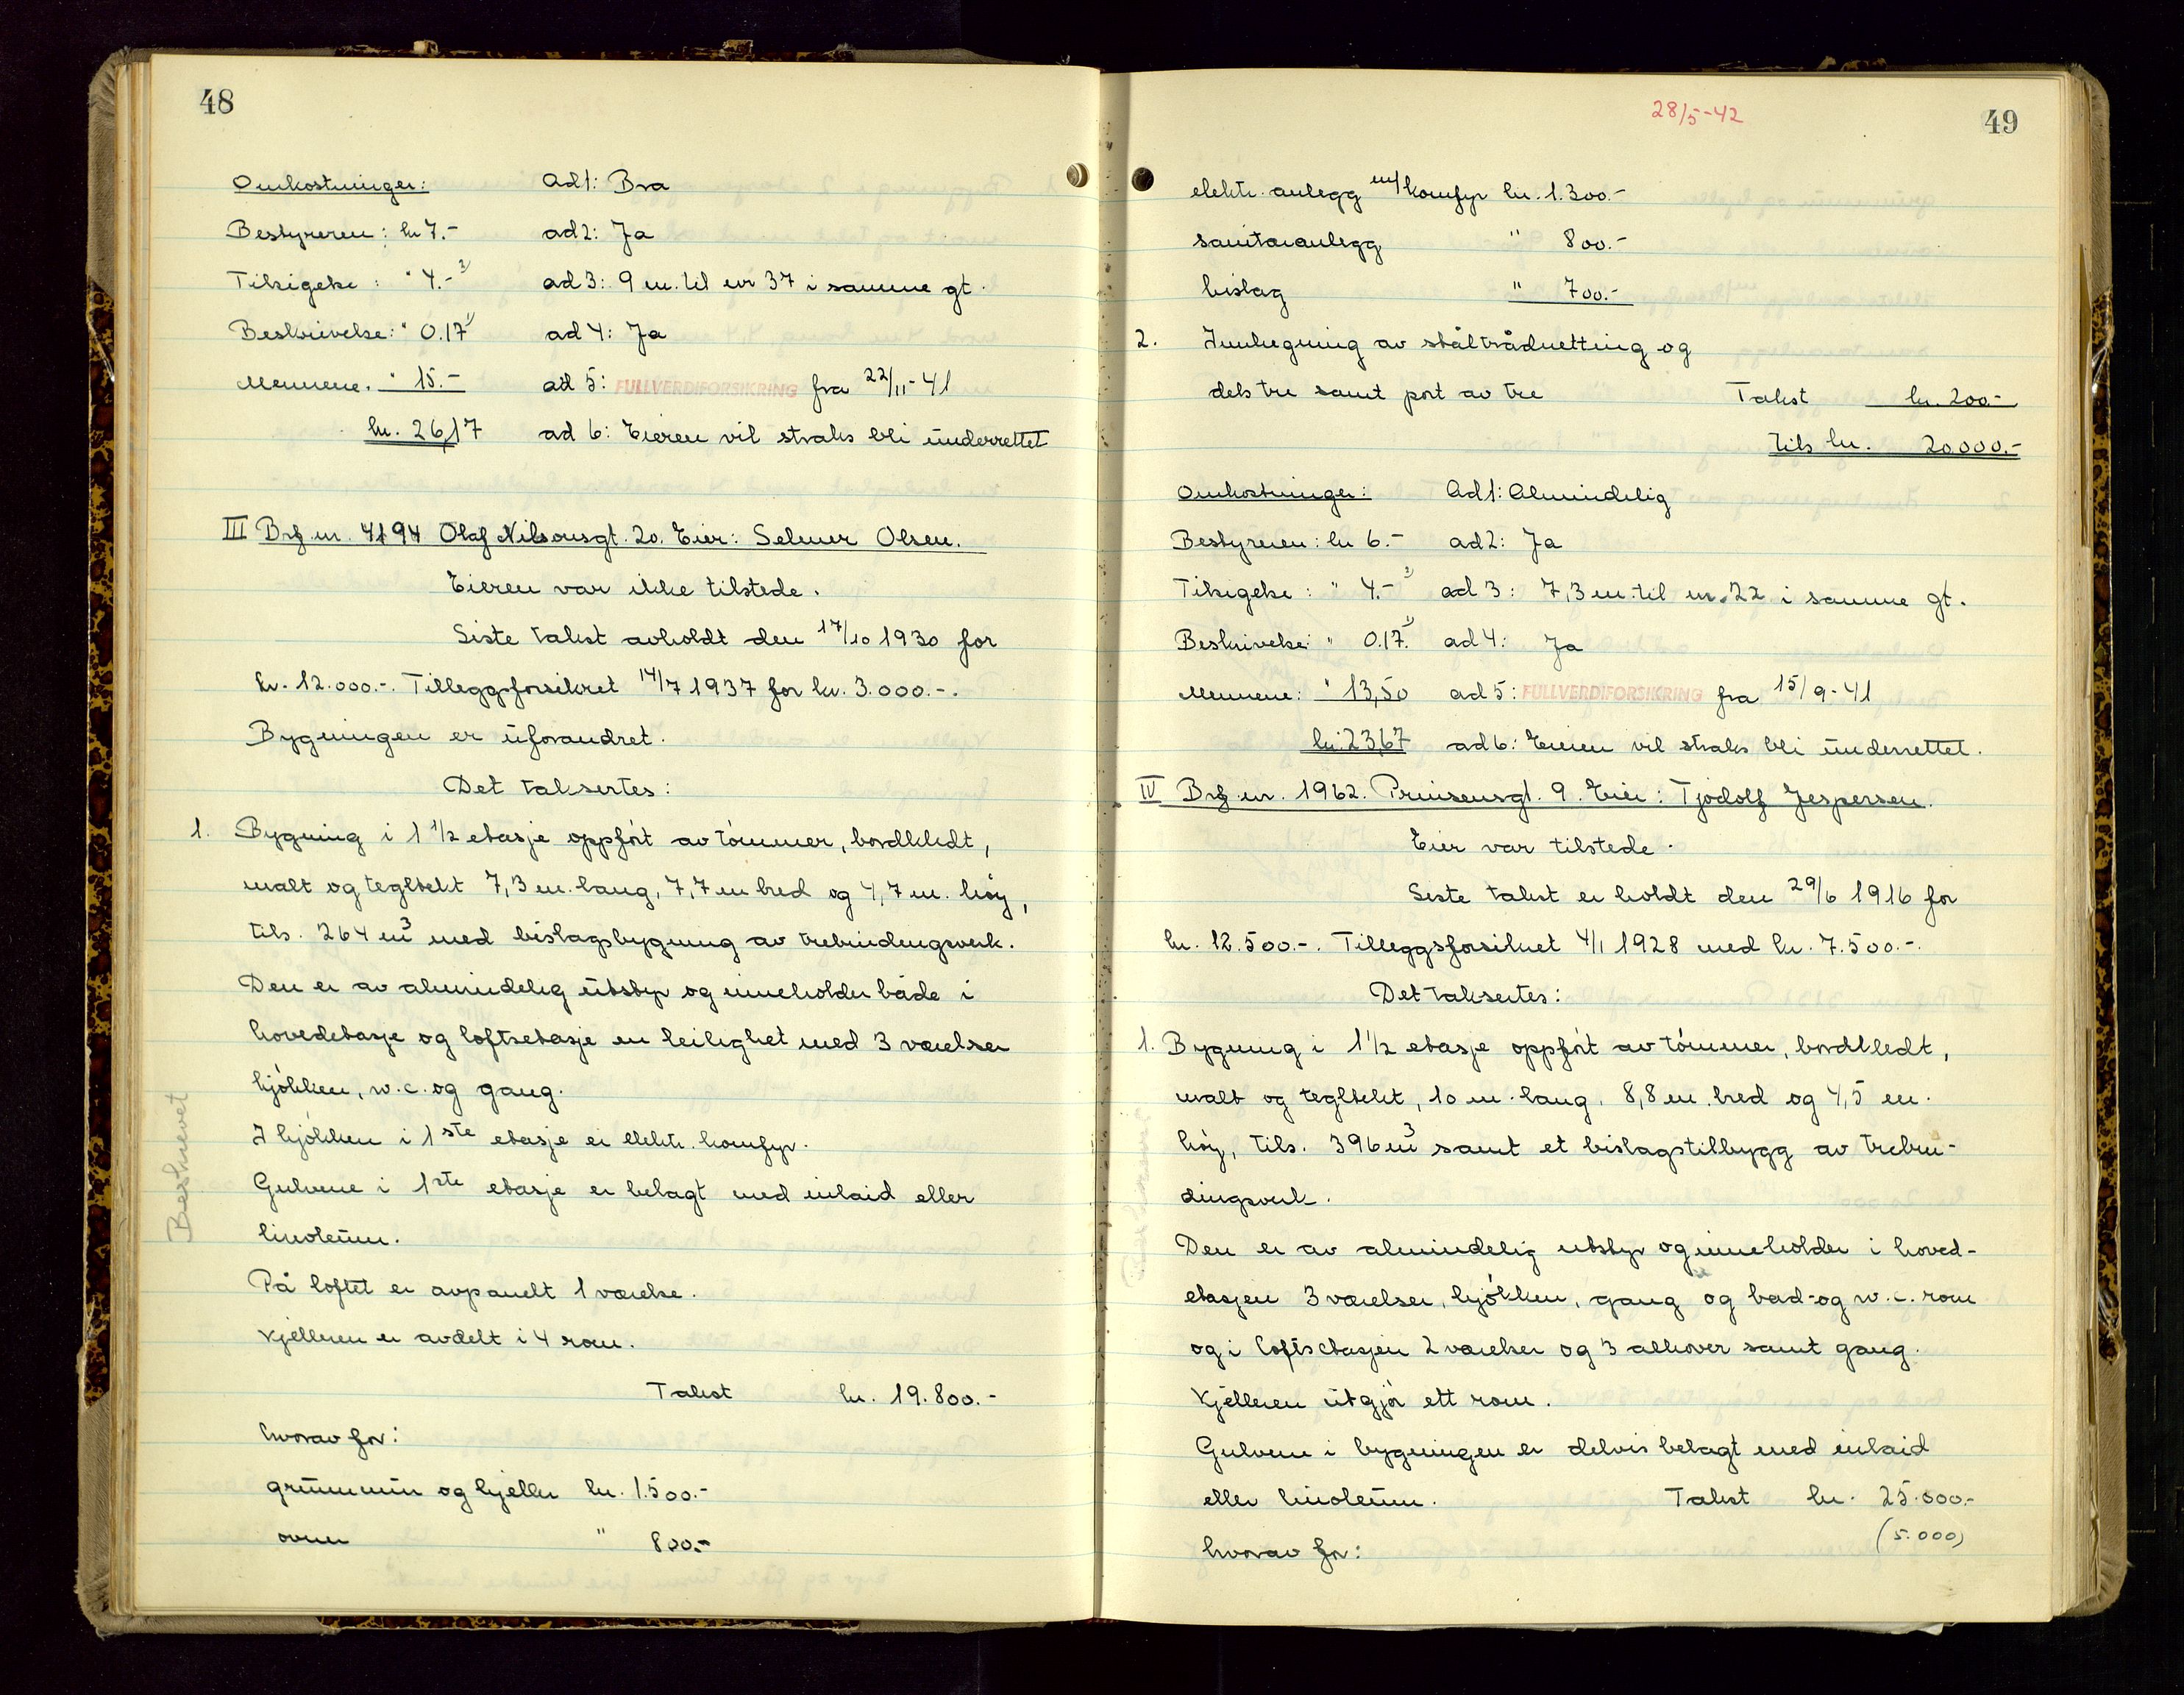 48
Omkostninger: ad 1: Bra
Bestyreren: kr 7.- ad 2: Ja
Tilsigelse: " 4.- ad 3: 9 m. til nr 37 i samme gt.
Beskrivelse: " 0.17 ad 4: Ja
Mennene. " 15.- ad 5: FULLVERDIFORSIKRING fra 22/11-41
kr. 26,17 ad 6: Eieren vil straks bli underrettet
III Brf. nr. 4194 Olaf Nilsonsgt. 20. Eier: Selmer Olsen.
Eieren var ikke tilstede.
Siste takst avholdt den 17/10 1930 for
kr. 12.000.-. Tilleggsforsikret 14/7 1937 for kr. 3.000.-.
Bygningen er uforandret.
Det taksertes:
1. Bygning i 1 1/2 etasje oppført av tømmer, bordkledt,
malt og tegltekt 7,3 m. lang, 7,7 m bred og 4,7 m. høy,
tils. 264 m³ med bislagsbygning av trebindingsverk.
Den er av almindelig utstyr og inneholder både i
hovedetasje og loftsetasje en leilighet med 3 værelser
kjøkken, w.c. og gang.
I kjøkken i 1ste etasje er elektr. komfyr.
Gulvene i 1ste etasje er belagt med inlaid eller
linoleum.
På loftet er avpanelt 1 værelse.
Kjelleren er avdelt i 4 rom.
Beskrevet
Takst kr. 19.800.-
hvorav for:
grunnmur og kjeller kr. 1.500.-
ovner " 800.-
28/5-42
49
elektr. anlegg m/komfyr kr. 1.300.-
sanitæranlegg " 800.-
bislag " 700.-
2. Innhegning av ståltrådnetting og
dels tre samt port av tre Takst kr. 200.-
tils kr. 20.000.-
Omkostninger: Ad 1: Almindelig
Bestyreren: kr 6.- ad 2: Ja
Tilsigelse: " 4.- ad 3: 7,3 m. til nr. 22 i samme gt.
Beskrivelse: " 0.17. ad 4: Ja
Mennene: " 13,50 ad 5: FULLVERDIFORSIKRING fra 15/9-41
kr. 23,67 ad 6: Eieren vil straks bli underrettet.
IV Brf. nr. 1962. Prinsensgt. 9. Eier: Tjodolf Jespersen.
Eier var tilstede.
Siste takst er holdt den 29/6 1916 for
kr. 12.500.-. Tilleggsforsikret 4/1 1928 med kr. 7.500.-.
Det taksertes:
1. Bygning i 1 1/2 etasje oppført av tømmer, bordkledt,
malt og tegltekt, 10 m. lang, 8,8 m. bred og 4,5 m.
høy, tils. 396 m³ samt et bislagstilbygg av trebin-
dingsverk.
Den er av almindelig utstyr og inneholder i hoved-
etasjen 3 værelser, kjøkken, gang og bad- og w.c. rom
og i loftsetasjen 2 værelser og 3 alkover samt gang.
Kjelleren utgjør ett rom.
Gulvene i bygningen er delvis belagt med inlaid
eller linoleum. Takst kr. 25.000.-
(5.000)
hvorav for: